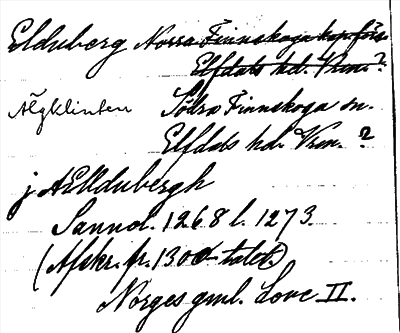 Elduberg Norra Finnskoga kapförs
Elfdals hd. Vrm.?
Älgklinten Södra Finnskoga sn.
Elfdals hd. Vrm. ?
j AElldubergh
Sannol. 1268 l. 1273.
(Afskr. fr. 1300-talet.)
Norges gml. Love II.